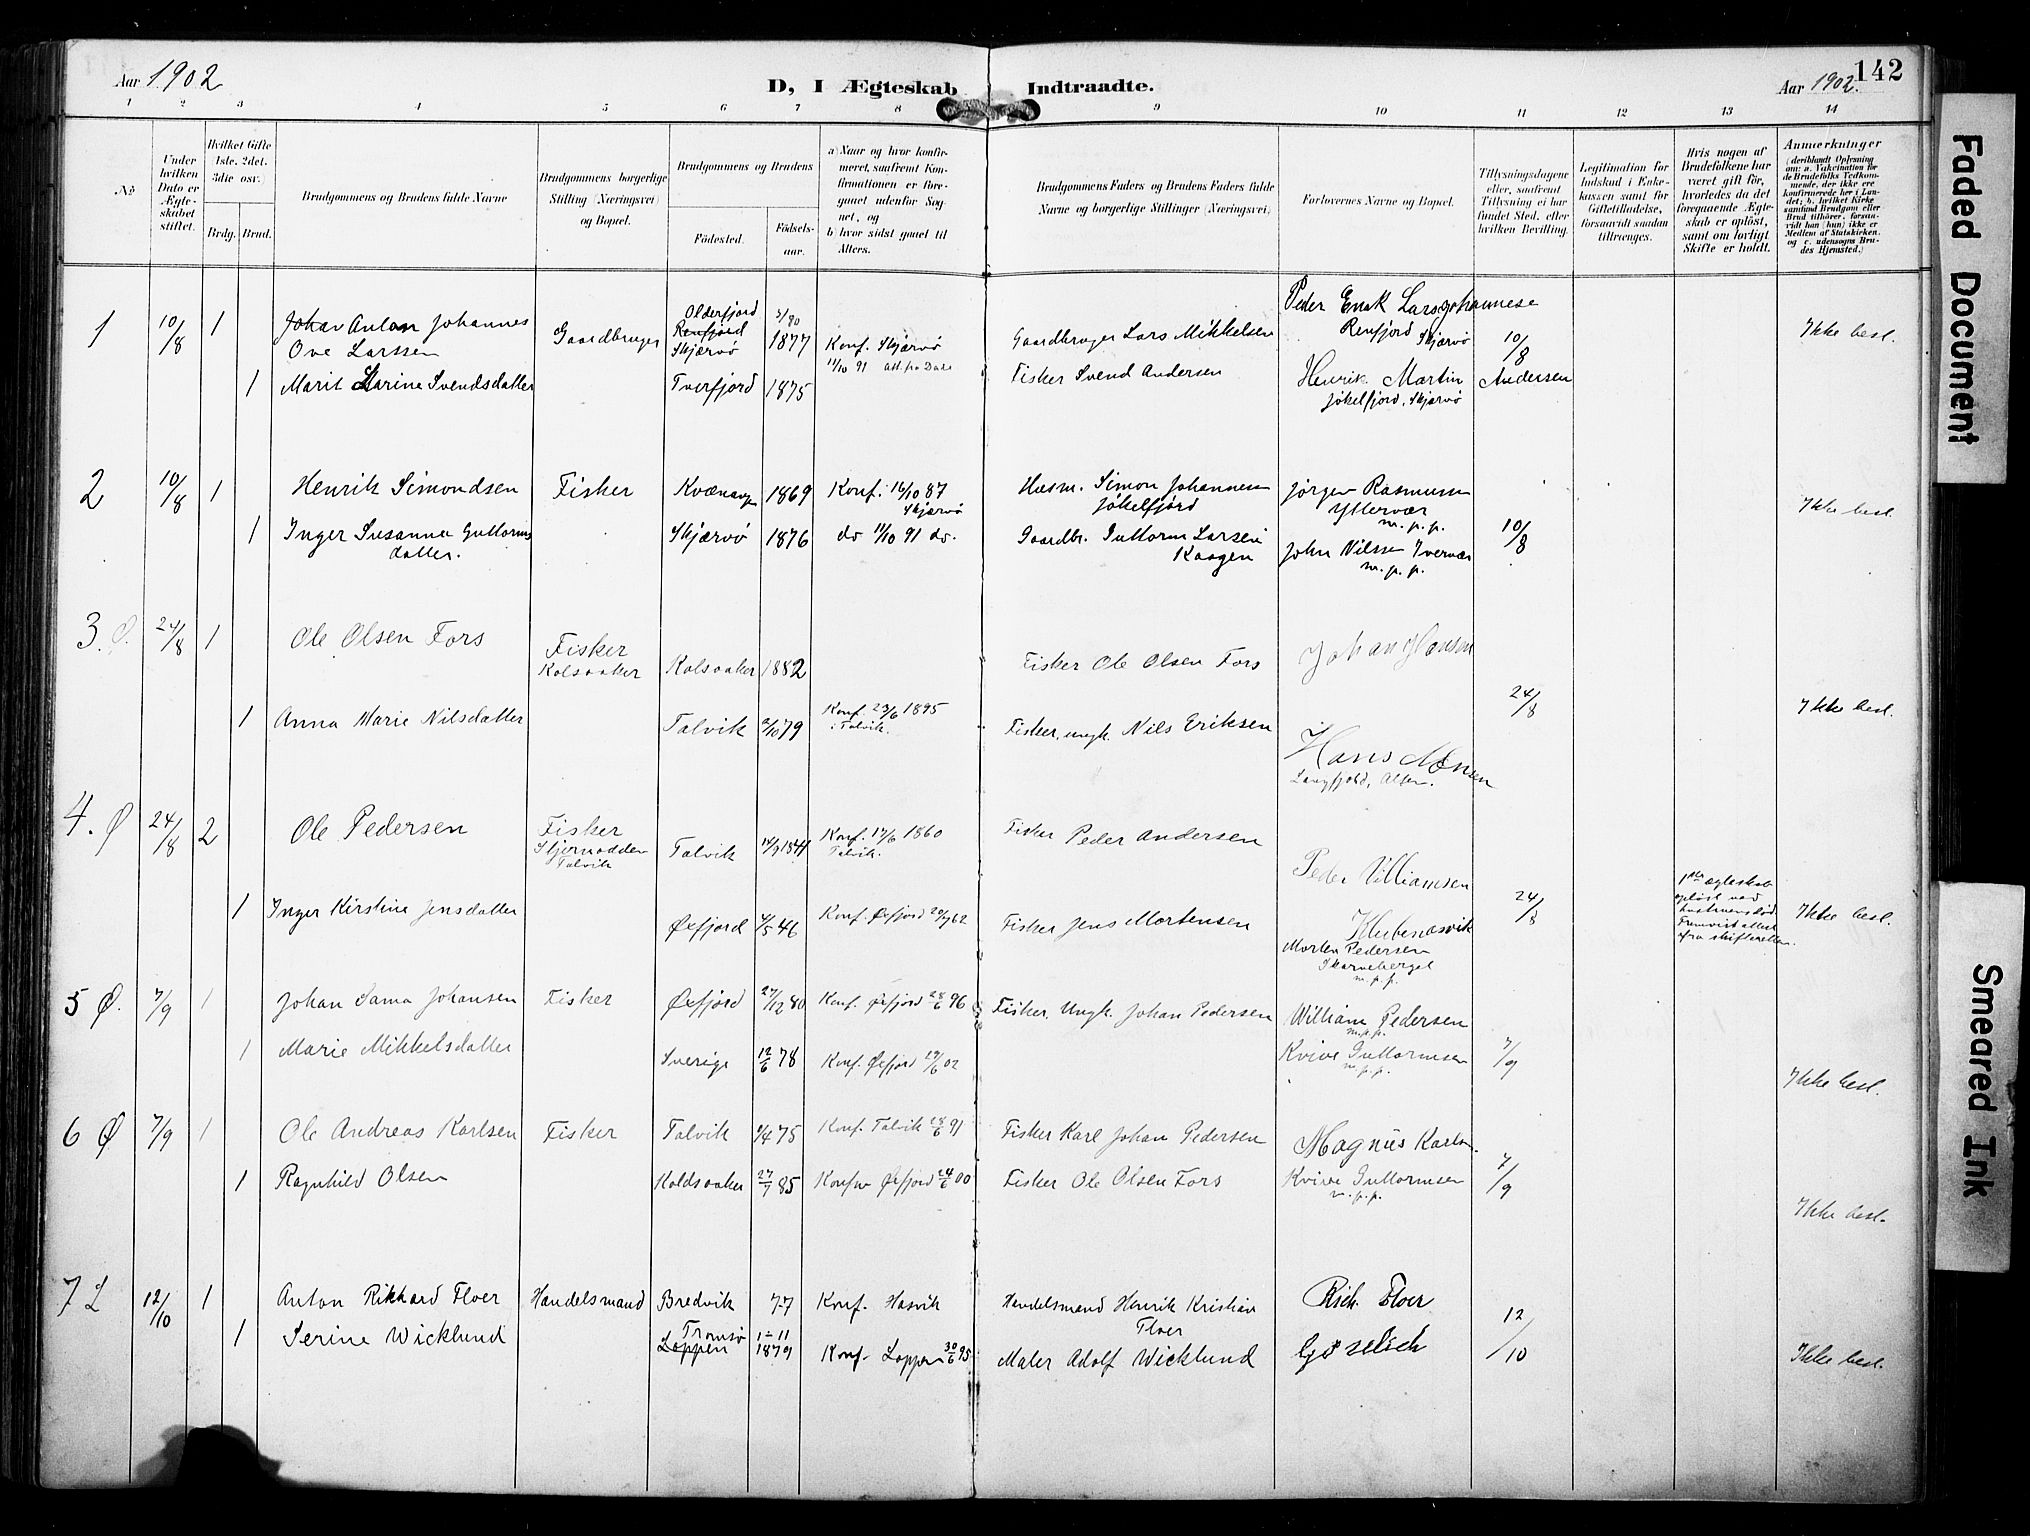 Aar 1902
D, I Ægteskab Indtraadte.
Aar 1902.
142
1 2 3 4 5 6 7 8 9 10 11 12 13 14
No
Under hvilken Dato er Ægteskabet stiftet.
Hvilket Gifte (1ste, 2det, 3die osv.)
Brdg. Brud.
Brudgommens og Brudens fulde Navne
Brudgommens borgerlige Stilling (Næringsvei) og Bopæl.
Brudgommens og Brudens
Fødested.
Fødselsaar.
a) Naar og hvor konfirmeret, saafremt Konfirmationen er foregaaet udenfor Sognet, og
b) hvor sidst gaaet til Alters.
Brudgommens Faders og Brudens Faders fulde Navne og borgerlige Stillinger (Næringsvei)
Forlovernes Navne og Bopæl.
Tillysningsdagene eller, saafremt Tillysning ei har fundet Sted, efter hvilken Bevilling.
Legitimation for Indskud i Enkekassen samt for Giftetilladelse, forsaavidt saadan tiltrænges.
Hvis nogen af Brudefolkene har været gift før, hvorledes da det foregaaende Ægteskab er opløst, samt om lovligt Skifte er holdt.
Anmerkninger
(deriblandt Oplysning om: a. Vakcination for de Brudefolks Vedkommende, der ikke ere konfirmerede her i Landet; b. hvilket Kirkesamfund Brudgom eller Brud tilhører, forsaavidt han (hun) ikke er Medlem af Statskirken, og c. udensogns Brudes Hjemsted.)
1 10/8 1 Johan Anton Johannes Ove Larssen Gaardbruger Olderfjord Renfjord Skjærvø 1877 Konf. Skjærvø 11/10 91 Gaardbruger Lars Mikkelsen Peder Larsjohannese Renfjord Skjærvø 10/8 Ikke besl.
1 Marit Karine Svendsdatter Tverfjord 1875 Fisker Svend Andersen Henrik Martin Andersen Jøkelfjord, Skjærvø
2 10/8 1 Henrik Simondsen Fisker Kvænang 1869 Konf. 16/10 87 Skjærvø Husm. Simon Johannesen Jøkelfjord Jørgen Rasmussen Yttervær m. p. p. 10/8 Ikke besl.
1 Inger Susanna Guttormsdatter. Skjærvø 1876 do 11/10 91 do. Gaardbr. Guttorm Larsen Kaagen John Nilssen m. p. p.
3. Ø. 24/8 1 Ole Olsen Fors Fisker Kolsaaker Kolsaaker 1882 Fisker Ole Olsen Fors Johan Hansen
1 Anna Marie Nilsdatter Talvik 2/10 79 Konf. 23/6 1895 i Talvik. Fisker, ungk. Nils Eriksen 24/8 Ikke besl.
Langfjord, Alten.
4. Ø 24/8 2 Ole Pedersen Fisker Talvik Talvik Konf. 17/6 1860 Talvik. Fisker Peder Andersen Peder Villiamsen
1 Inger Kirstine Jensdatter Øxfjord 4/5 46 Konf. Øxfjord 29/7 62 Fisker Jens Mortensen Klubenæsvik Morten Pedersen Skarvberget m.p.p. 24/8 1ste ægteskab opløst ved hustruens død. Fremvist attest fra skifteretten. Ikke besl.
5 Ø. 7/9 1 Johan Sama Johansen Fisker Øxfjord 27/12 80 Konf. Øxfjord 28/6 96 Fisker. Ungk. Johan Pedersen William Pedersen m.p.p.
1 Marie Mikkelsdatter Sverige 12/6 78 Konf. Øxfjord 29/6 02 Kvive Guttormsen m.p.p. 7/9 Ikke besl.
6 Ø 7/9 1 Ole Andreas Karlsen Fisker Talvik 4/4 75 Konf. Talvik 28/6 91 Fisker Karl Johan Pedersen Magnus Karlsn
1 Ragnhild Olsen Koldsaaker 27/7 85 Konf. Øxfjord 24/6 00 Fisker Ole Olsen Fors Kvive Guttormsen m.p.p. 7/9 Ikke besl.
7 L 12/10 1 Anton Rikhard Floer Handelsmand Bredvik 77 Konf. Hasvik Handelsmand Henrik Kristian Floer Rich. Floer
1 Serine Wicklund Tromsø Loppen 1-11 1879 Konf. Loppen 30/6 95 Maler Adolf Wicklund 12/10 Ikke besl.
Faded Document
Smeared Ink